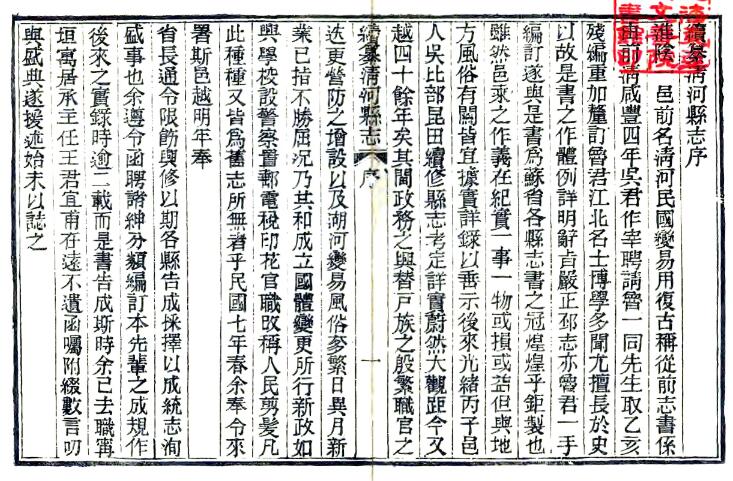 續纂淸河縣志序
淮陰　邑前名淸河民國變易用復古稱從前志書係
前淸咸豐四年吳君作宰聘請魯一同先生取乙亥
殘編重加釐訂魯君江北名士博學多聞尤擅長於史
以故是書之作體例詳明辭旨嚴正邳志亦魯君一手
編訂遂與是書爲蘇省各縣志書之冠煌煌乎鉅製也
雖然邑乘之作義在紀實一事一物或損或益但與地
方風俗有關皆宜據實詳錄以垂示後來光緖丙子邑
人吳比部昆田續修縣志考定詳實蔚然大觀距今又
越四十餘年矣其間政務之興替戸族之殷繁職官之
續纂淸河縣志　序　一
迭更營防之增設以及湖河變易風俗參繁日異月新
業已指不勝屈況乃共和成立國體變更所行新政如
興學校設警察置郵電稅印花官職改稱人民剪髮凡
此種種又皆爲舊志所無者乎民國七年春余奉令來
署斯邑越明年奉
省長通令限飭與修以期各縣告成採擇以成統志洵
盛事也余遵令函聘諸紳分類編訂本先輩之成規作
後來之實錄時逾二載而是書告成斯時余已去職寗
垣寓居承主任王君宜甫在遠不遺函囑附綴數言叨
與盛典遂援述始末以誌之